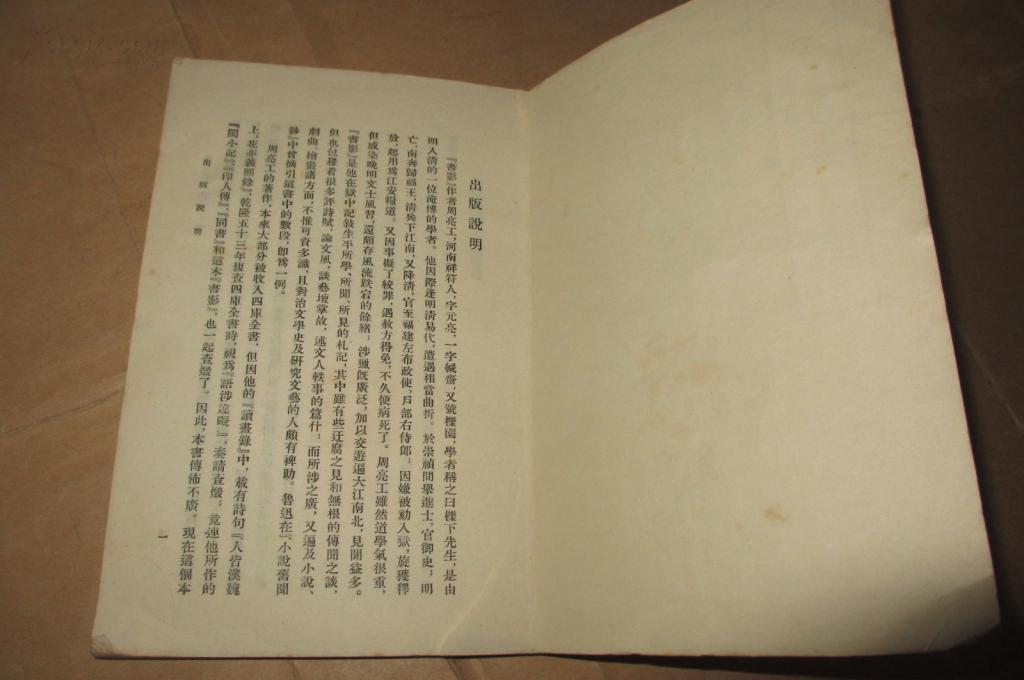 出版説明
『書影』作者周亮工，河南祥符人，字元亮，一字緘齋，又號櫟園，學者稱之曰櫟下先生，是由
明入清的一位淹博的學者。他因際逢明清易代，遭遇相當曲折。於崇禎間舉進士，官御史；明
亡，南奔歸福王，清兵下江南，又降清，官至福建左布政使、戶部右侍郎；因嫌被劾入獄，旋獲釋
放，起用爲江安糧道，又因事擬了絞罪，遇赦方得免，不久便病死了。周亮工雖然道學氣很重，
但感染晚明文士風習，還頗存風流跌宕的餘緒；涉獵旣廣泛，加以交遊遍大江南北，見聞益多。
『書影』是他在獄中記敍生平所學、所聞、所見的札記，其中雖有些迂腐之見和無根的傳聞之談，
但也包羅着很多評詩賦，論文風，談藝壇掌故，述文人軼事的篇什；而所涉之廣，又遍及小說、
劇曲、繪畫諸方面，不惟可資多識，且對治文學史及研究文藝的人頗有裨助。魯迅在『小說舊聞
鈔』中曾摘引這書中的數段，卽爲一例。
周亮工的著作，本來大部分被收入四庫全書，但因他的『讀畫錄』中，載有詩句『人皆漢魏
上，花亦義熙餘』，乾隆五十三年複查四庫全書時，視爲『語涉違礙』，奏請查燬；竟連他所作的
『閩小記』、『印人傳』、『同書』和這本『書影』，也一起查燬了。因此，本書傳佈不廣。現在這個本
出版說明
一